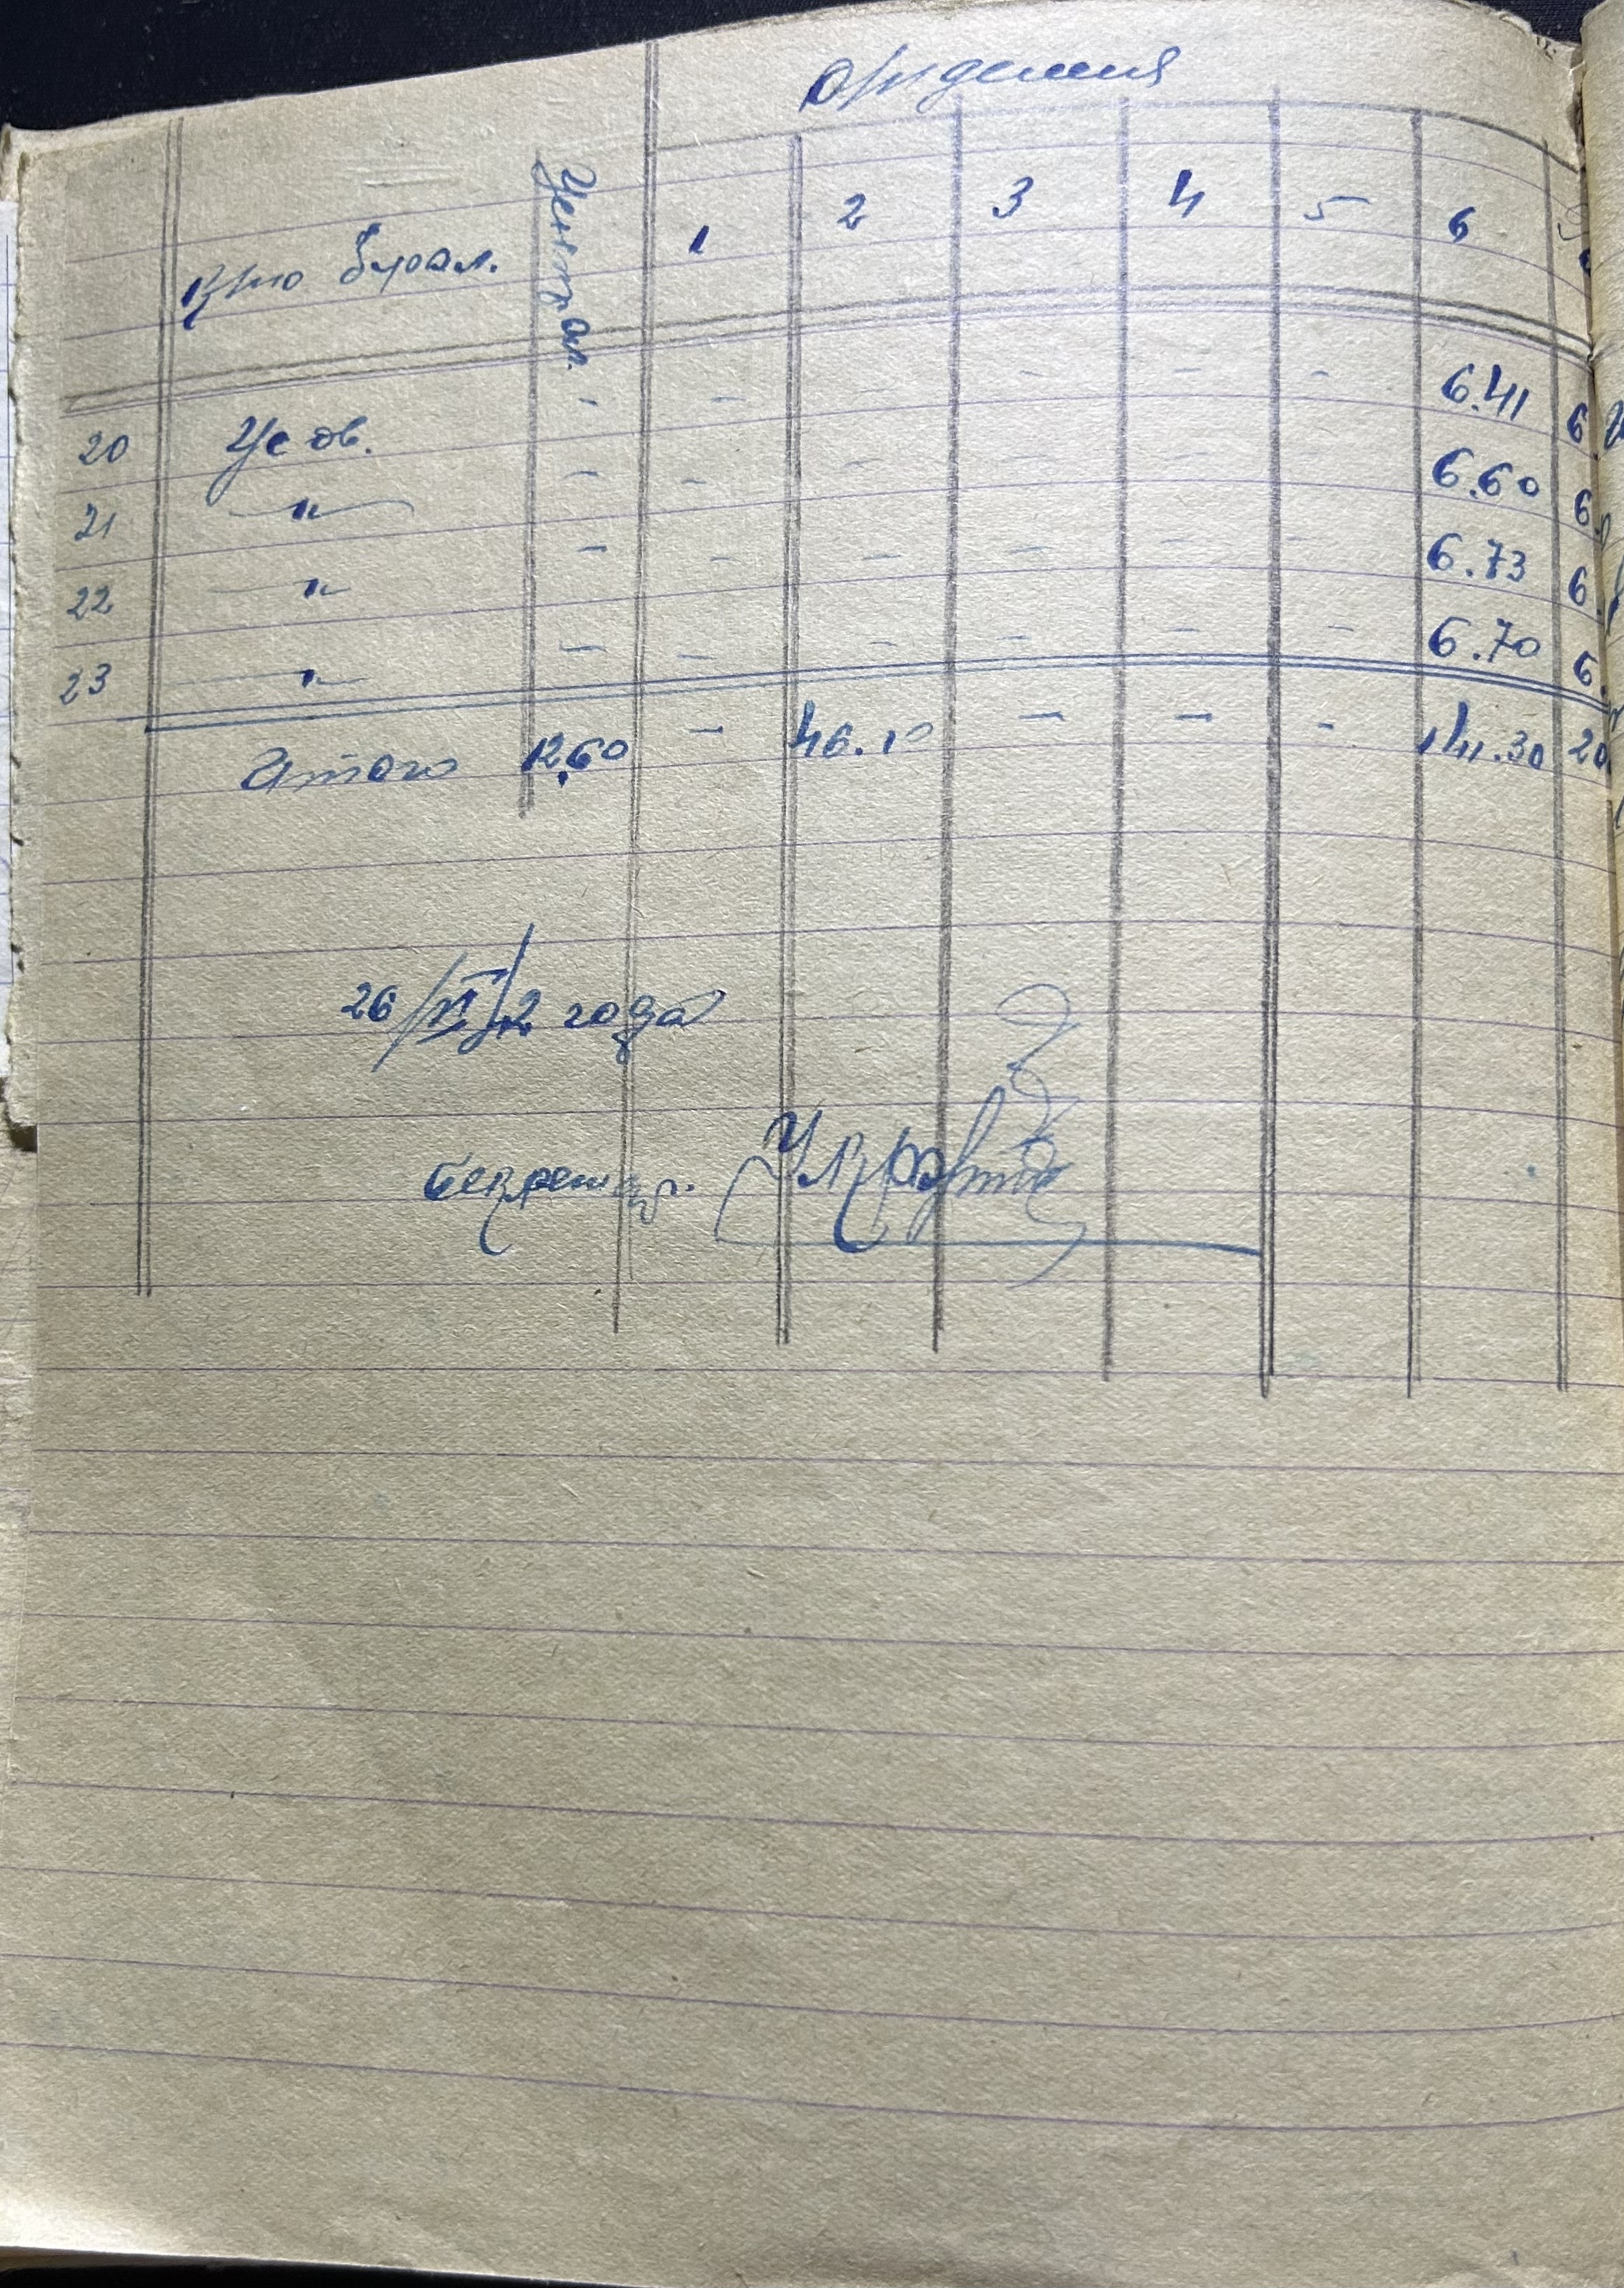 Отделения
Кто брал. Централ. 1 2 3 4 5 6
20 Усов. - - - - - 6.41 6
21 —"— - - - - - 6.60 6.
22 —"— - - - - - - 6.73 6.
23 —"— - - - - - - 6.70 6.
Итого 12.60 - 46.10 - - - 141.30 20
26/VI/2 года
Секретар.